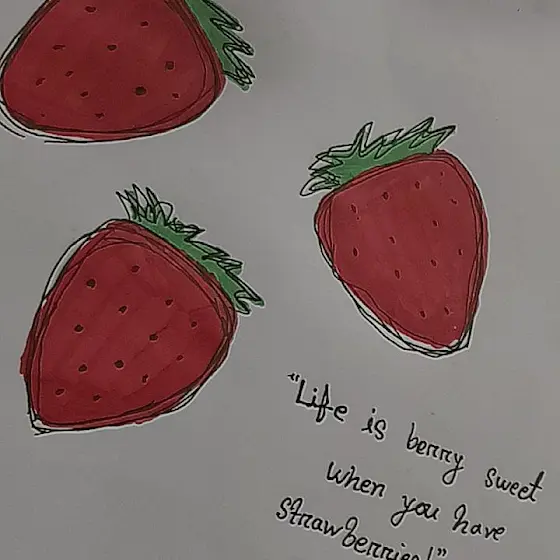 "Life is berry sweet
when you have
strawberries!"